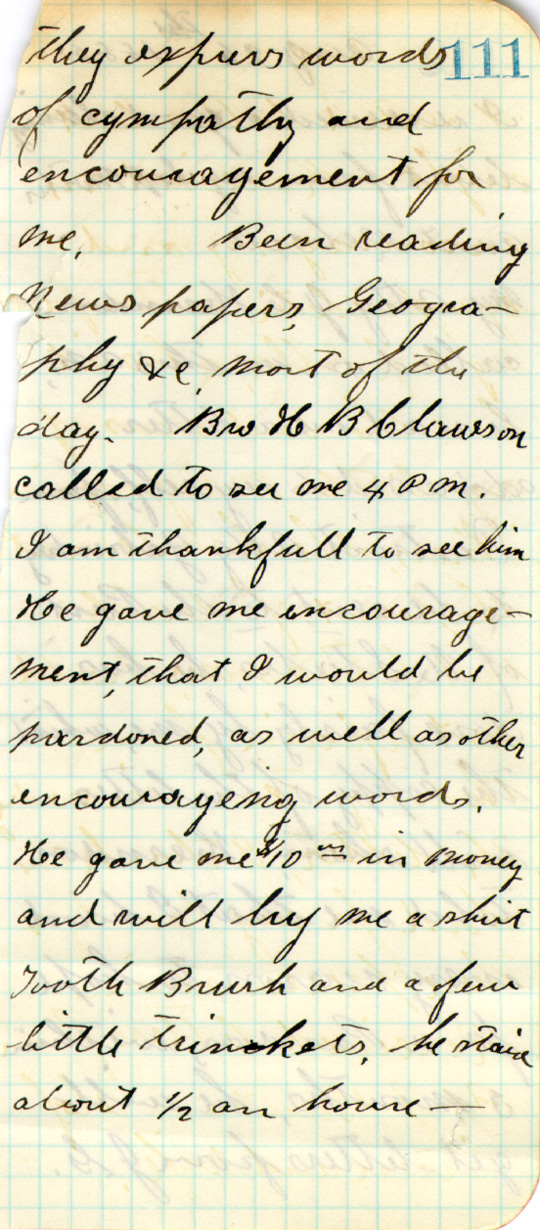 111
they express words
of cympathy and
encouragement for
me. Been reading
News papers, Geogra-
phy &c, most of the
day. Bro H B Clawson
called to see me 4 P m.
I am thankfull to see him
He gave me encourage-
ment, that I would be
pardoned, as well as other
encourageing words.
He gave me $10 in money
and will by me a shirt
Tooth Brush and a few
little trinckets, he staid
about 1/2 an houre—